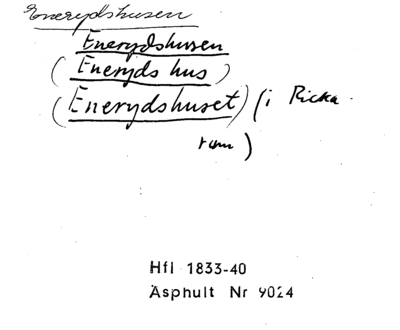 Enerydshusen
Enerydshusen
(Eneryds hus)
(Enerydshuset) (i Ricka-
rum)
Hfl 1833-40
Äsphult Nr 9024